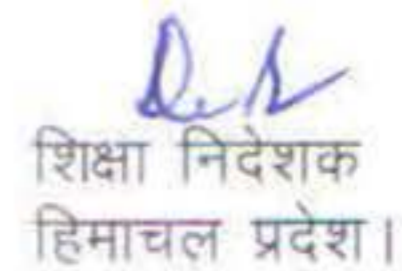 शिक्षा निदेशक
हिमाचल प्रदेश।